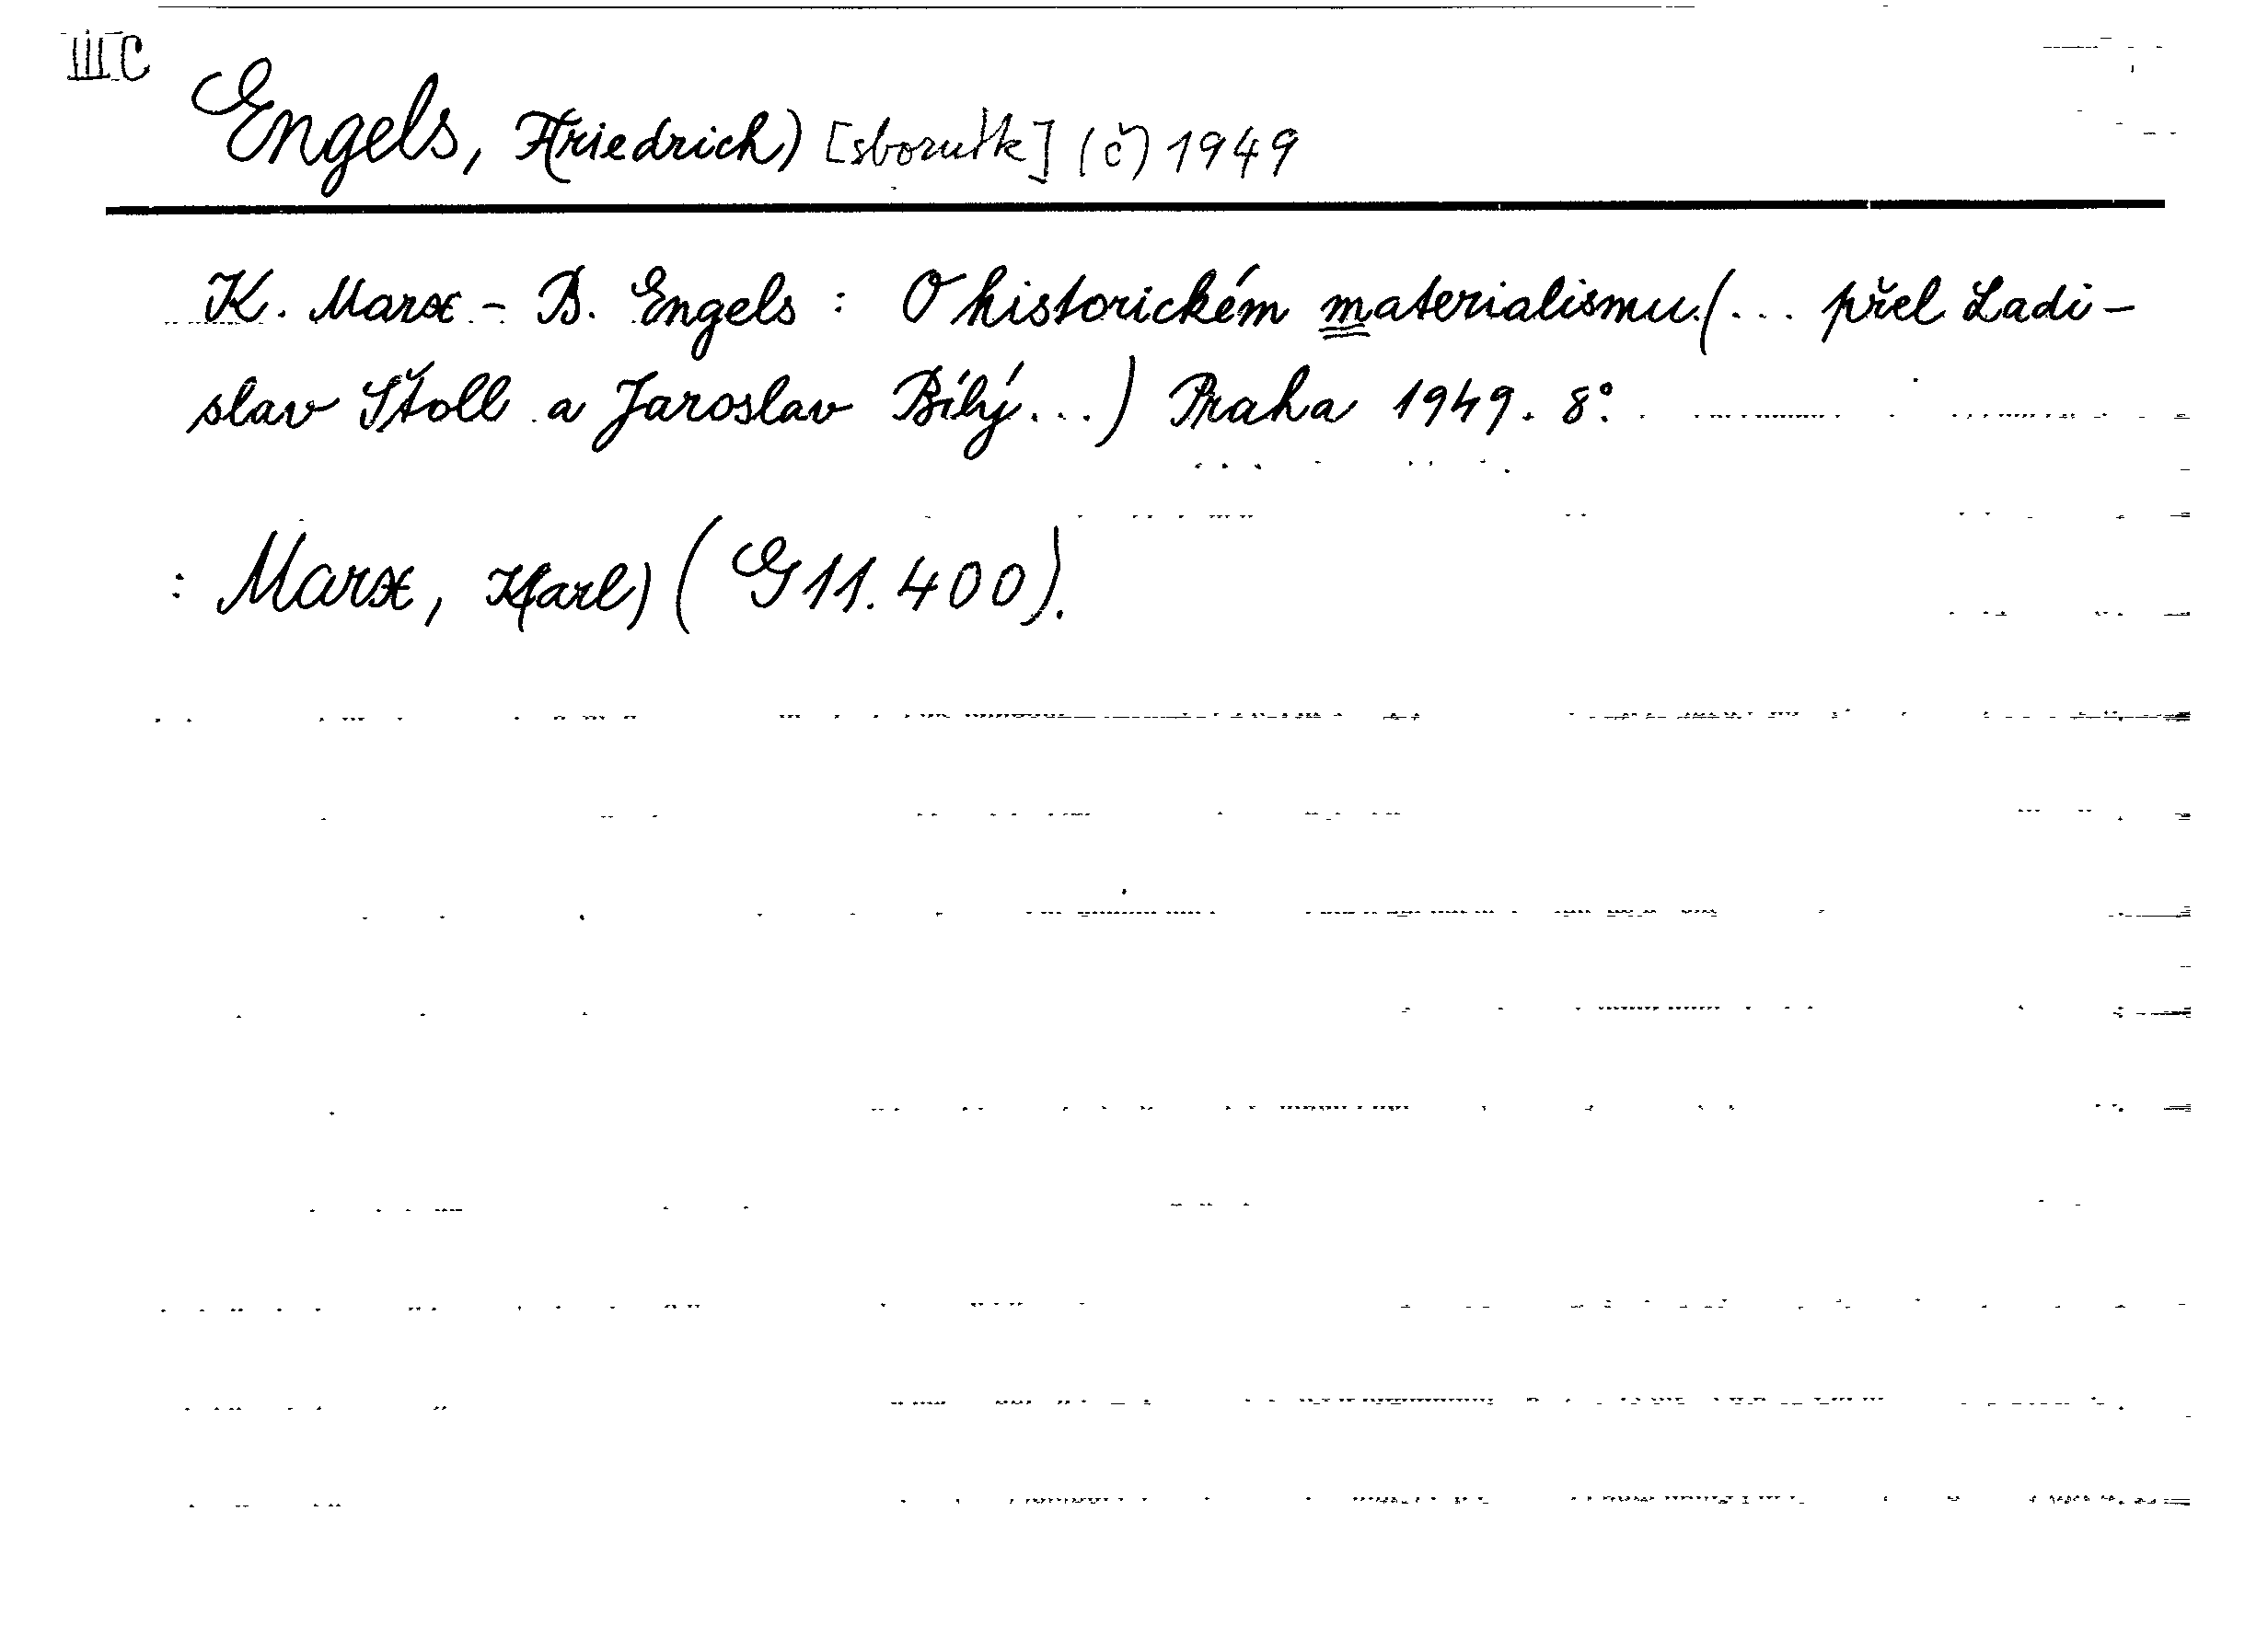 III C
Engels, F(riedrich) [sborník] (č) 1949
K. Marx - B. Engels : O historickém materialismu. (... přel Ladi-
slav Štoll a Jaroslav Bílý...) Praha 1949. 8°.
: Marx, K(arl) (G 11.400).